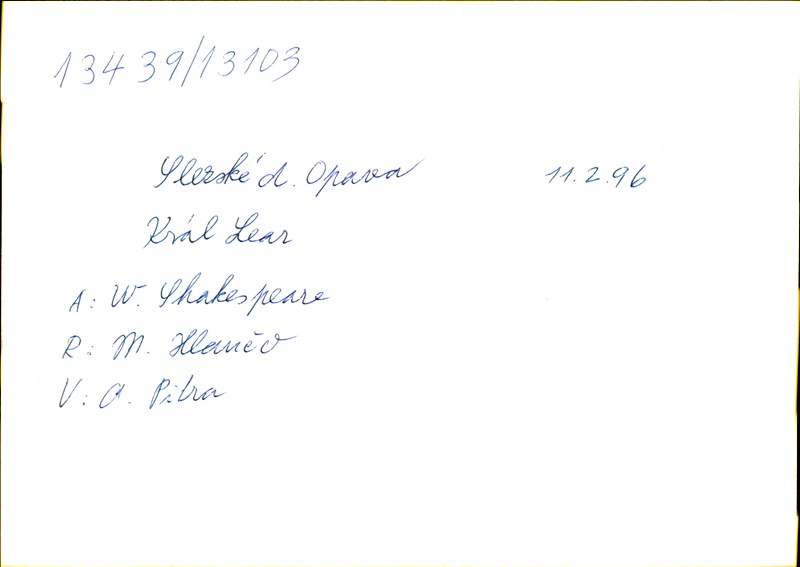 13439/13103
Slezské d. Opava 11.2.96
Král Lear
A: W. Shakespeare
R: M.
V: A. Pitra